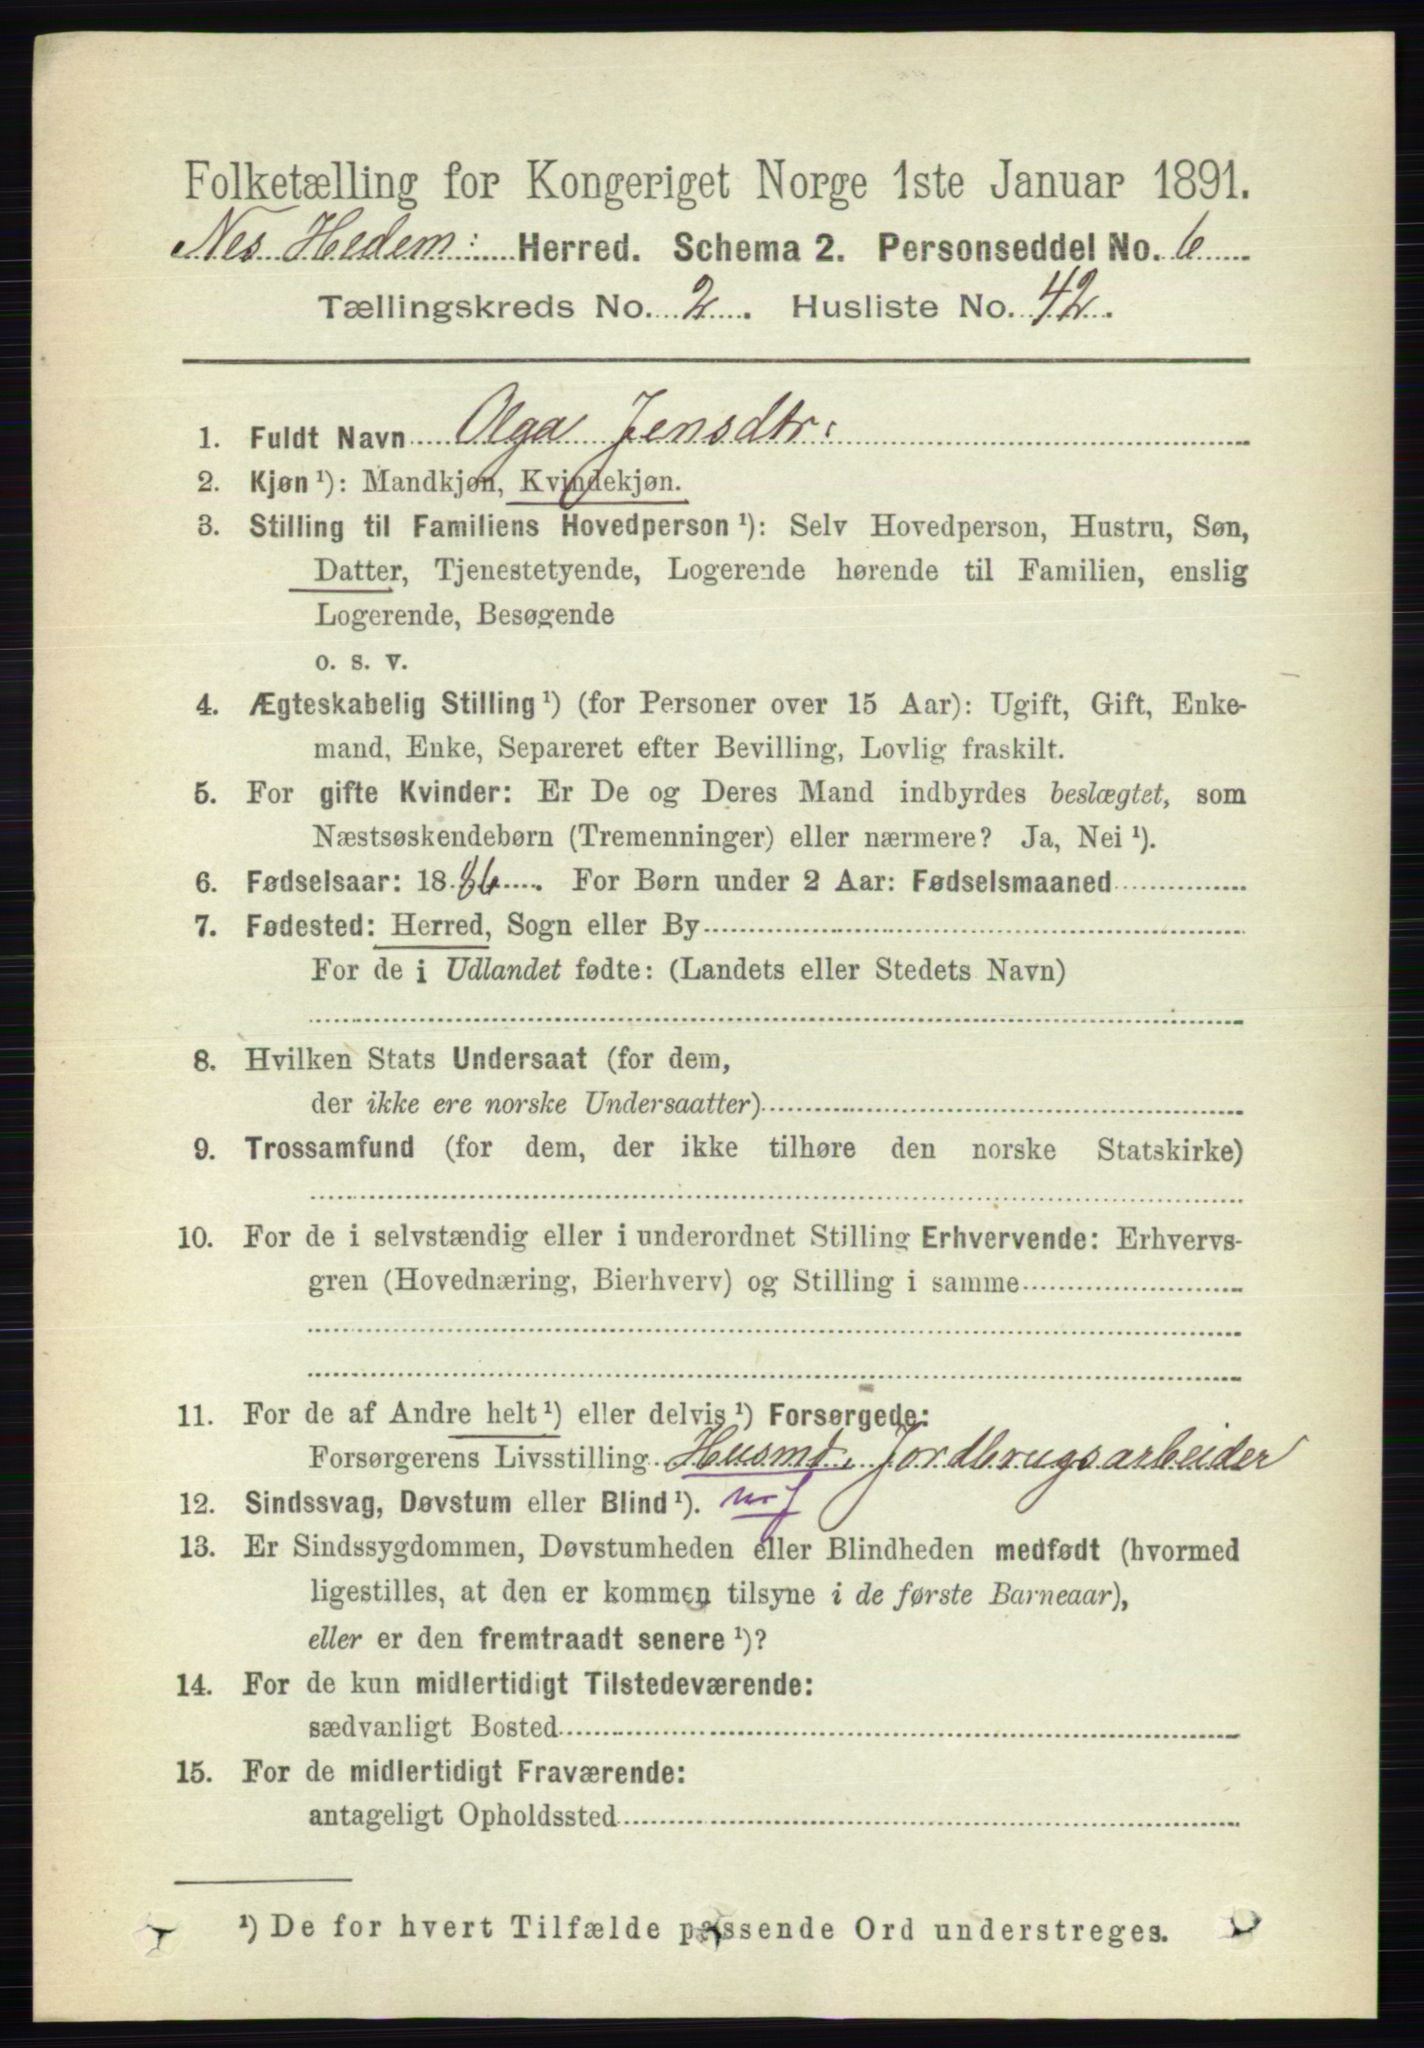 Folketælling for Kongeriget Norge 1ste Januar 1891.
Nes Hedem: Herred. Schema 2. Personseddel No. 6
Tællingskreds No. 2. Husliste No. 42.
1. Fuldt Navn Olga Jensdtr:
2. Kjøn ¹): Mandkjøn, Kvindekjøn.
3. Stilling til Familiens Hovedperson ¹): Selv Hovedperson, Hustru, Søn,
Datter, Tjenestetyende, Logerende hørende til Familien, enslig
Logerende, Besøgende
o. s. v.
4. Ægteskabelig Stilling ¹) (for Personer over 15 Aar): Ugift, Gift, Enke-
mand, Enke, Separeret efter Bevilling, Lovlig fraskilt.
5. For gifte Kvinder: Er De og Deres Mand indbyrdes beslægtet, som
Næstsøskendebørn (Tremenninger) eller nærmere? Ja, Nei ¹).
6. Fødselsaar: 1886. For Børn under 2 Aar: Fødselsmaaned
7. Fødested: Herred, Sogn eller By
For de i Udlandet fødte: (Landets eller Stedets Navn)
8. Hvilken Stats Undersaat (for dem,
der ikke ere norske Undersaatter)
9. Trossamfund (for dem, der ikke tilhøre den norske Statskirke)
10. For de i selvstændig eller i underordnet Stilling Erhvervende: Erhvervs-
gren (Hovednæring, Bierhverv) og Stilling i samme
11. For de af Andre helt ¹) eller delvis ¹) Forsørgede:
Forsørgerens Livsstilling Husmd. Jordbrugsarbeider
12. Sindssvag, Døvstum eller Blind ¹). mf
13. Er Sindssygdommen, Døvstumheden eller Blindheden medfødt (hvormed
ligestilles, at den er kommen tilsyne i de første Barneaar),
eller er den fremtraadt senere ¹)?
14. For de kun midlertidigt Tilstedeværende:
sædvanligt Bosted
15. For de midlertidigt Fraværende:
antageligt Opholdssted
¹) De for hvert Tilfælde passende Ord understreges.